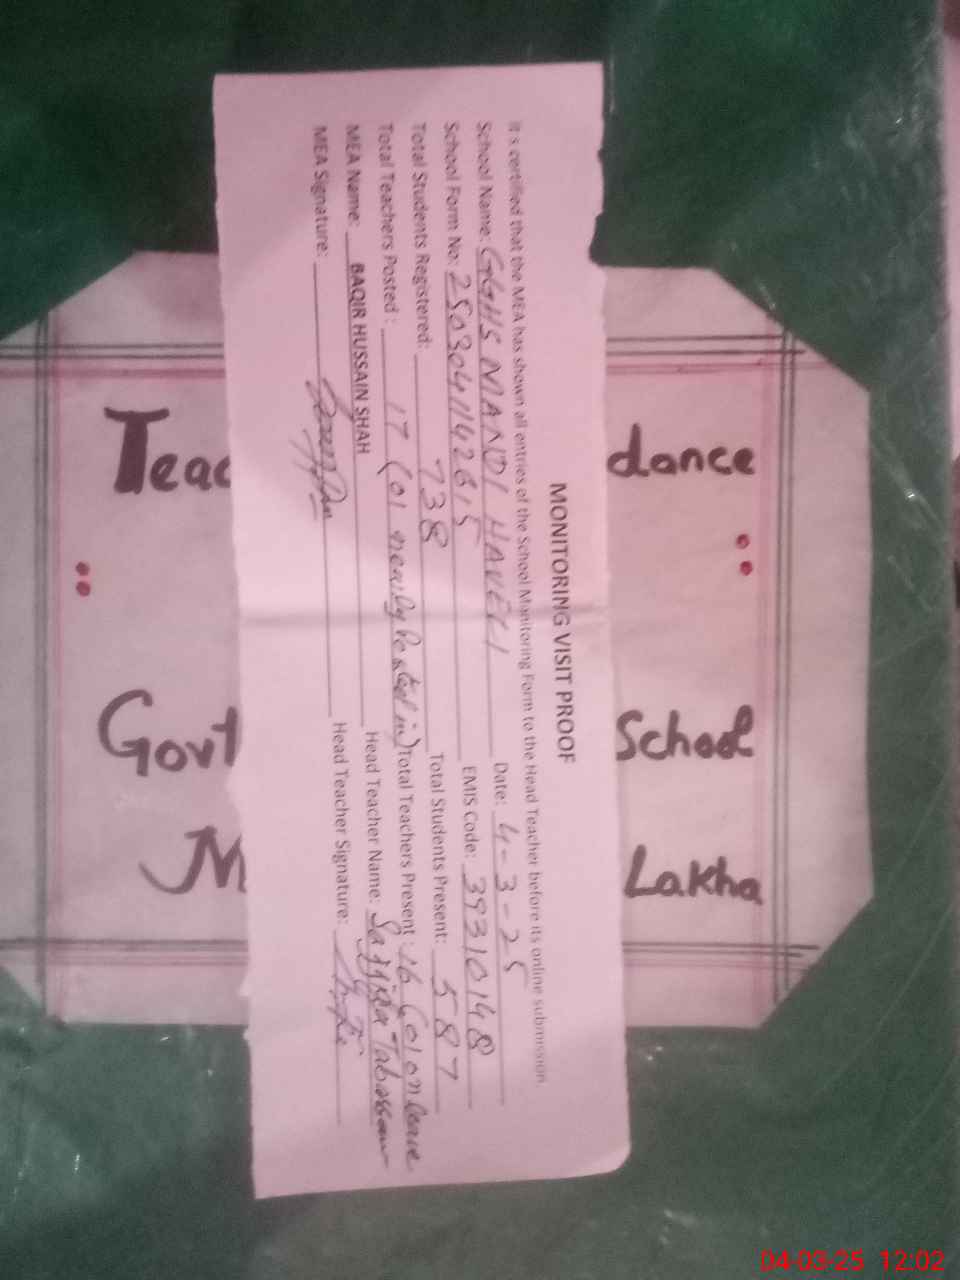 MONITORING VISIT PROOF
It's certified that the MEA has shown all entries of the School Monitoring Form to the Head Teacher before its online submission
School Name: GGHS MANDI HAVELI Date: 4-3-25
School Form No: 2503041142615 EMIS Code: 39310148
Total Students Registered: 738 Total Students Present: 587
Total Teachers Posted: 17 (01 newly posted in) Total Teachers Present: 16 (01 on leave
MEA Name: BAQIR HUSSAIN SHAH Head Teacher Name: Sajjida Tabassum
MEA Signature: Head Teacher Signature:
Teac dance
Govt School
M Lakha
04-03-25 12:02